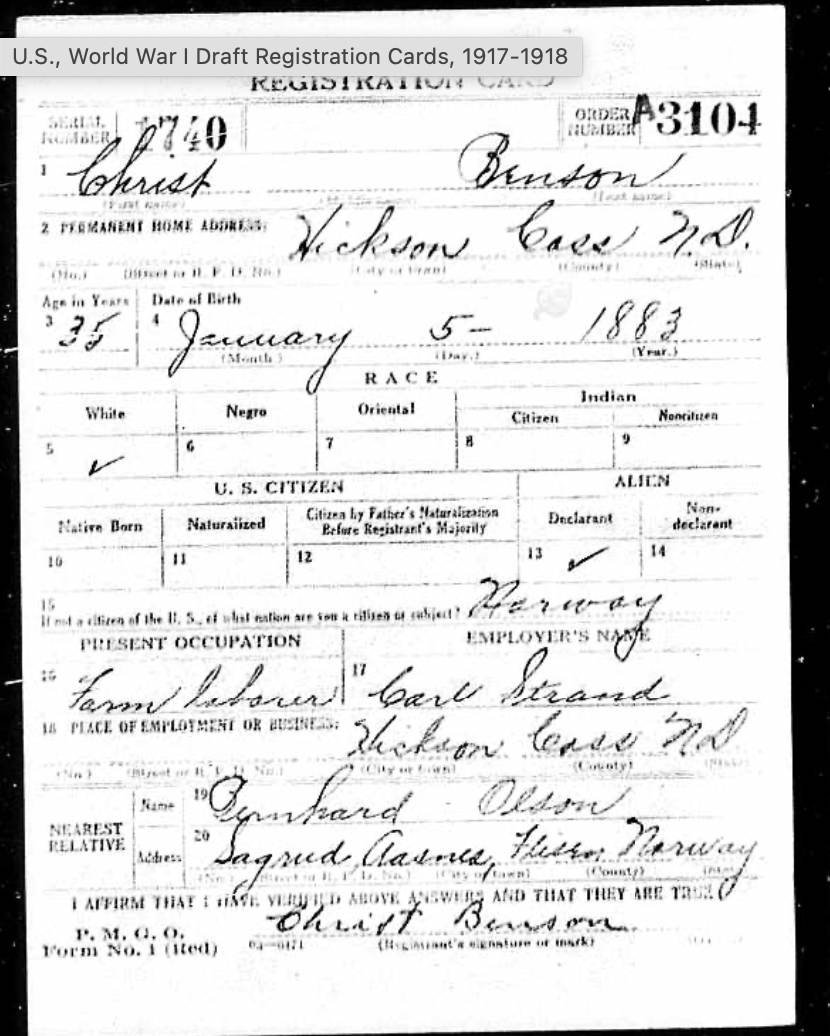 U.S., World War I Draft Registration Cards, 1917-1918
REGISTRATION CARD
SERIAL NUMBER 1740 ORDER NUMBER A3104
1 Christ Benson
(First name) (Middle name) (Last name)
2 PERMANENT HOME ADDRESS: Hickson Cass N.D.
(No.) (Street or R. F. D. No.) (City or town) (County) (State)
Age in Years Date of Birth
3 35 4 January 5- 1883
(Month.) (Day.) (Year.)
RACE
White Negro Oriental Indian
Citizen Noncitizen
5 ✓ 6 7 8 9
U. S. CITIZEN ALIEN
Native Born Naturalized Citizen by Father's Naturalization Before Registrant's Majority Declarant Non-declarant
10 11 12 13 ✓ 14
15 If not a citizen of the U. S., of what nation are you a citizen or subject? Norway
PRESENT OCCUPATION EMPLOYER'S NAME
16 Farm laborer 17 Carl Strand
18 PLACE OF EMPLOYMENT OR BUSINESS: Hickson Cass ND
(No.) (Street or R. F. D. No.) (City or town) (County) (State)
NEAREST RELATIVE
Name 19 Bernhard Olson
Address 20 Aasnes, Norway
(No.) (Street or R. F. D. No.) (City or town) (County) (State)
I AFFIRM THAT I HAVE VERIFIED ABOVE ANSWERS AND THAT THEY ARE TRUE
P. M. G. O.
Form No. 1 (Red) 03-6171 Christ Benson
(Registrant's signature or mark)